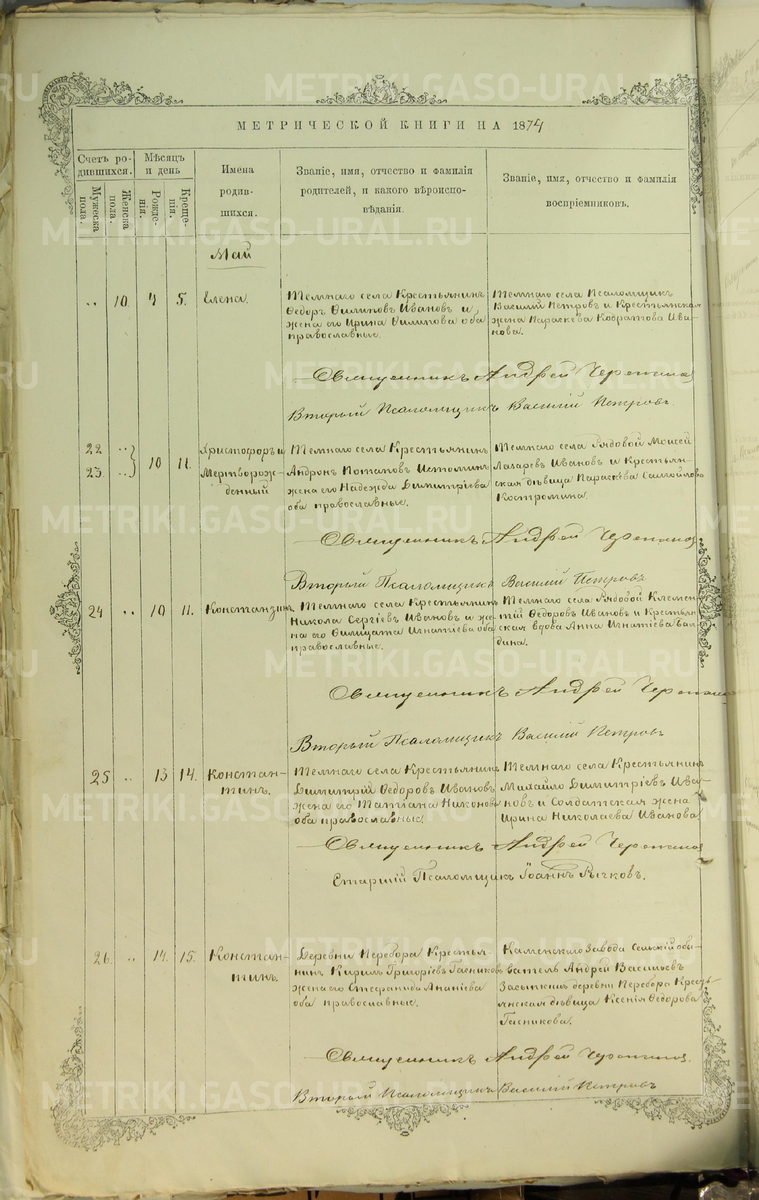 МЕТРИЧЕСКОЙ КНИГИ НА 1874
Счетъ родившихся.
Мужеска пола.
Женска пола.
Мѣсяцъ и день
Рожденія.
Крещенія.
Имена родившихся.
Званіе, имя, отчество и фамилія
родителей, и какого вѣроисповѣданія.
Званіе, имя, отчество и фамилія
воспріемниковъ.
Май
.. 10. 4 5. Елена.
Темнаго села Крестьянинъ
Ѳедоръ Филиповъ Ивановъ и
жена его Ирина Филипова оба
православные.
Темнаго села Псаломщикъ
Василій Петровъ и Крестьянская
жена Параскева Ива-
нова.
Священникъ Андрей
Второй Псаломщикъ Василій Петровъ
22 ..
23 ..
10 11.
Христофоръ и
Мертворож-
денный
Темнаго села Крестьянинъ
Андронъ Потаповъ
жена его Надежда Димитріева
оба православные.
Темнаго села Рядовой Моисей
Лазаревъ Ивановъ и Крестьян-
ская дѣвица Параскева Самойлова
Костромина.
Священникъ Андрей
Второй Псаломщикъ Василій Петровъ
24 .. 10 11. Константинъ
Темнаго села Крестьянинъ
Никола Сергіевъ Ивановъ и же-
на его Филицата Игнатіева оба
православные.
Темнаго села Рядовой Климен-
тій Ѳедоровъ Ивановъ и Крестьян-
ская вдова Анна Игнатіева
дина.
Священникъ Андрей
Второй Псаломщикъ Василій Петровъ
25 .. 13 14. Констан-
тинъ.
Темнаго села Крестьянинъ
Димитрій Ѳедоровъ Ивановъ
жена его Татіана Никонова
оба православные.
Темнаго села Крестьянинъ
Михайло Димитріевъ Ива-
новъ и Солдатская жена
Ирина Николаева Иванова
Священникъ Андрей
Старшій Псаломщикъ Іоаннъ Рычковъ.
26. .. 14. 15. Констан-
тинъ.
Деревни Перебора Крестья-
нинъ Кирилъ Григоріевъ Гасниковъ
жена его Стефанида Ананіева
оба православные.
Каменскаго Завода Сельскій обы-
ватель Андрей Васильевъ
деревни Перебора Кресть-
янская дѣвица Ксенія Ѳедорова
Гасникова.
Священникъ Андрей
Второй Псаломщикъ Василій Петровъ
METRIKI.GASO-URAL.RU